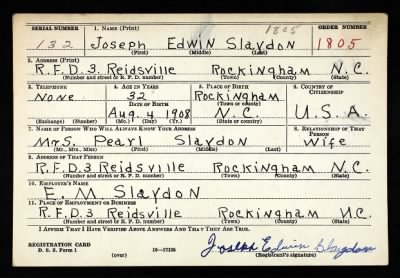 SERIAL NUMBER 1. NAME (Print) 1805 ORDER NUMBER
132 Joseph Edwin Slaydon 1805
(First) (Middle) (Last)
2. ADDRESS (Print)
R.F.D 3 Reidsville Rockingham N.C.
(Number and street or R. F. D. number) (Town) (County) (State)
3. TELEPHONE 4. AGE IN YEARS 5. PLACE OF BIRTH 6. COUNTRY OF CITIZENSHIP
None 32 Rockingham
DATE OF BIRTH (Town or county)
Aug. 4 1908 N.C. U.S.A.
(Exchange) (Number) (Mo.) (Day) (Yr.) (State or country)
7. NAME OF PERSON WHO WILL ALWAYS KNOW YOUR ADDRESS 8. RELATIONSHIP OF THAT PERSON
Mrs. Pearl Slaydon Wife
(Mr., Mrs., Miss) (First) (Middle) (Last)
9. ADDRESS OF THAT PERSON
R.F.D.3 Reidsville Rockingham N.C.
(Number and street or R. F. D. number) (Town) (County) (State)
10. EMPLOYER'S NAME
E. M. Slaydon
11. PLACE OF EMPLOYMENT OR BUSINESS
R.F.D.3 Reidsville Rockingham N.C.
(Number and street or R. F. D. number) (Town) (County) (State)
I AFFIRM THAT I HAVE VERIFIED ABOVE ANSWERS AND THAT THEY ARE TRUE.
REGISTRATION CARD
D. S. S. Form 1 16—17105 (over) Joseph Edwin Slaydon
(Registrant's signature)